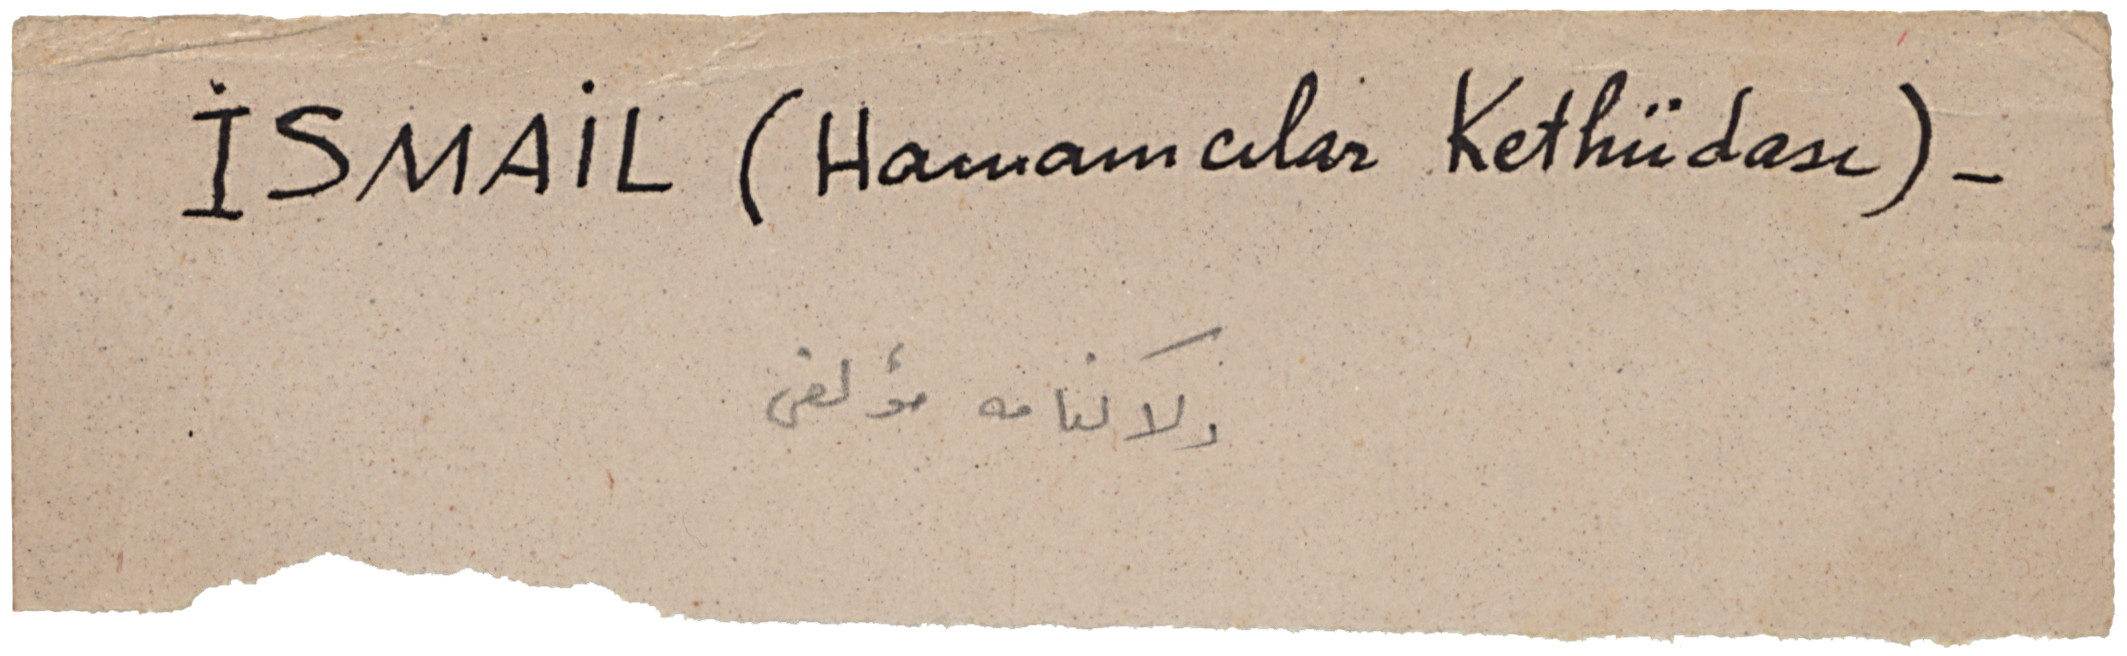 İSMAİL (Hamamcılar Kethüdası) -
دلاکنامه مؤلفی